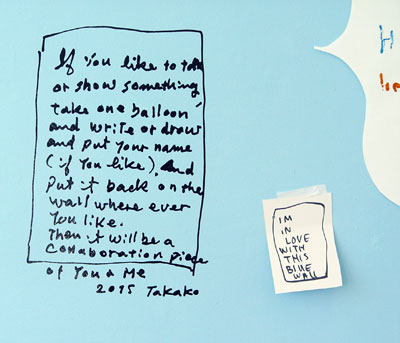 If You like to talk
or show something
take one balloon
and write or draw
and put your name
(if You like). And
put it back on the
wall where ever
You like.
Then it will be a
Collaboration piece
of You & Me
2015 Takako
IM
IN
LOVE
WITH
THIS
BLUE
WALL
H